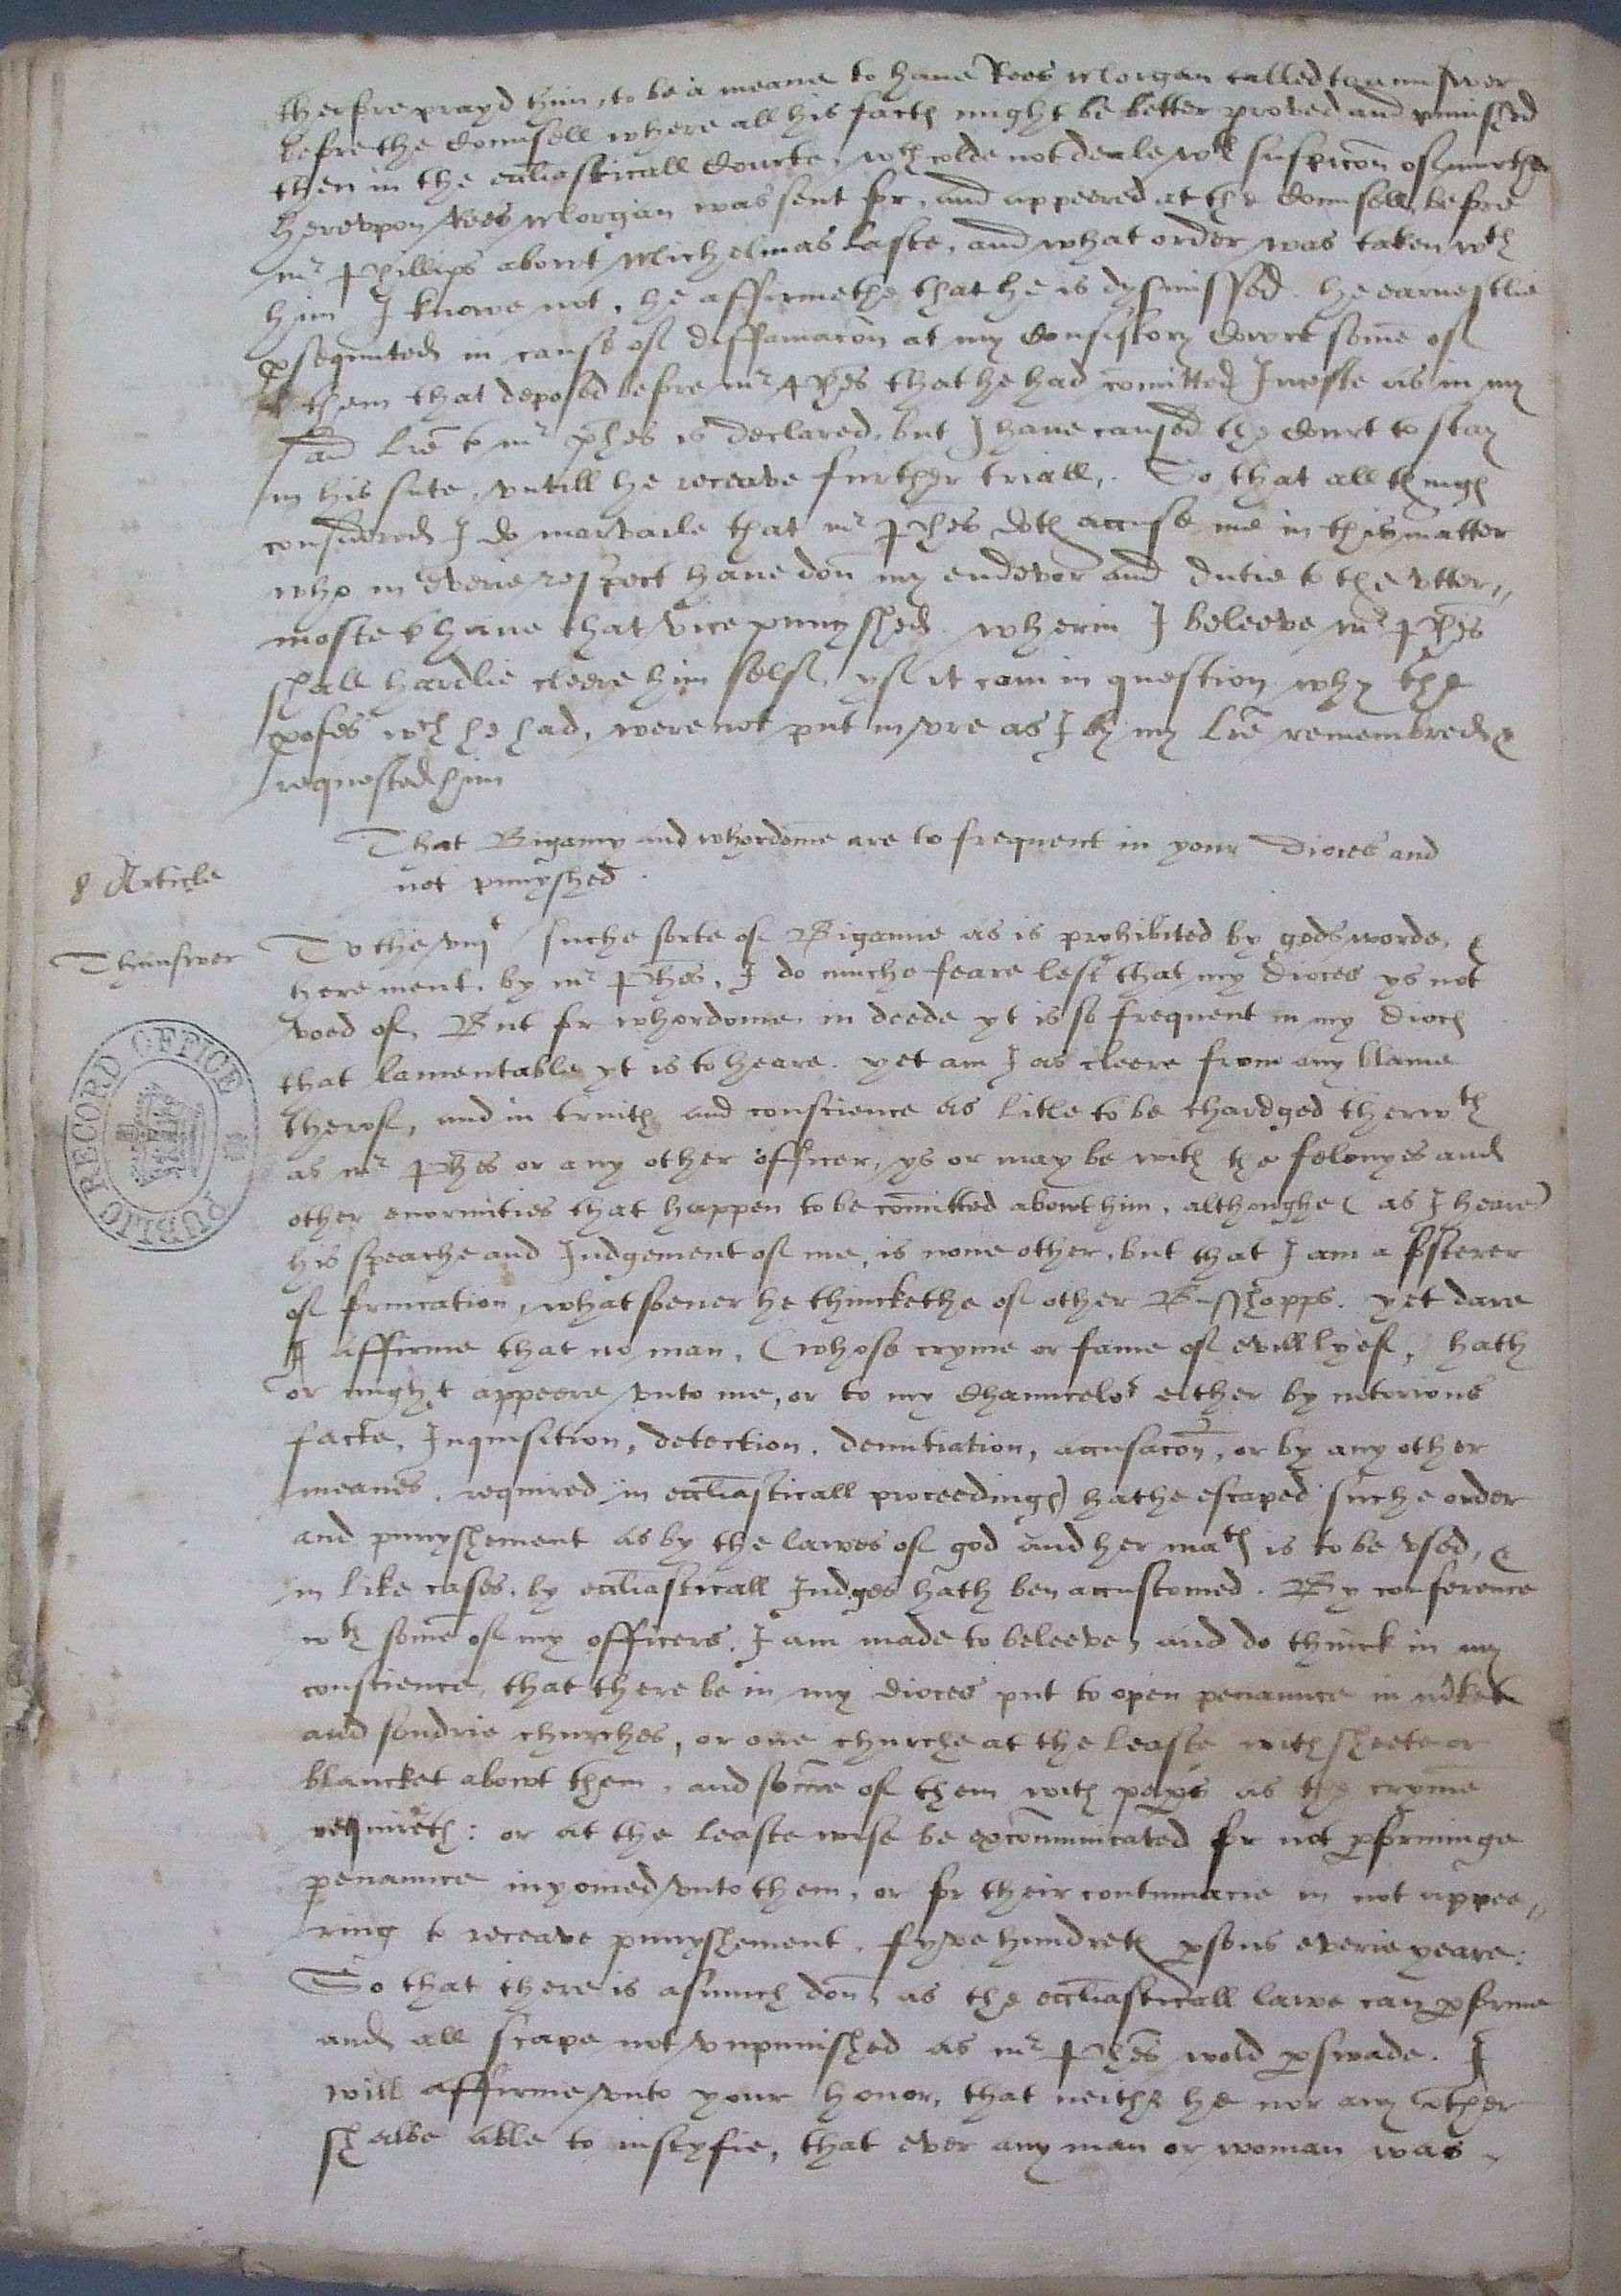 therfore prayd him, to be a meane to have Rees Morgan called to aunswer
before the Counsell where all his factes might be better proved and punished
then in the eccliasticall Courte, wch colde not deale wth suspicon of murther
herevpon Rees Morgan was sent for, and appeered at the Counsell, before
mr Phillips abowt Michelmas laste, and what order was taken wth
him I knowe not, he affirmethe that he is dysmissed. he earnestlie
psequuted in cause of diffamacon at my Consistory Cowrt some of
them that deposed before mr Phes that he had comitted Inceste as in my
said lre to mr phes is declared, but I have caused the Court to stay
in his sute, vntill he receave further triall. So that all thinges
considered I do marvaile that mr Phes doth accuse me in this matter
who in everie respect have don my endevor and dutie to the vtter„
moste to have that vice punyshed. wherin I beleeve mr Phes
shall hardlie cleere him self, yf it cam in question why the
profes wch he had, were not put in vre as I by my lre remembred &
requested him
That Bigamy and whordome are to frequent in your Dioces and
not punyshed.
8 Article
Thanswer
To the viijt suche sorte of Bigamie as is prohibited by gods worde, &
here ment. by mr Phes, I do muche feare lest that my dioces ys not
voed of, But for whordome in deede yt is so frequent in my dioces
that lamentable yt is to heare. yet am I as cleere from any blame
therof, and in truith and conscience as litle to be chardged therwth
as mr Phes or any other officer, ys or may be with the felonyes and
other enormities that happen to be comitted abowt him, althoughe (as I heare)
his speache and Iudgement of me, is none other, but that I am a fosterer
of fornication, whatsoever he thinckethe of other Bisshopps. yet dare
I affirme that no man, (whose cryme or fame of evill lyef, hath
or might appeere vnto me, or to my Chauncelor either by notorious
facte, Inquisition, detection, denutiation, accusacon, or by any other
meanes, required in eccliasticall proceedinges) hathe escaped suche order
and punyshement as by the lawes of god and her matie is to be vsed, &
in like cases, by eccliasticall Iudges hath ben accustomed. By conference
wth some of my officers, I am made to beleeve, and do thinck in my
conscience, that there be in my dioces put to open penaunce in mrket
and sondrie churches, or one churche at the leaste with sheete or
blancket abowt them, and some of them with paps as the cryme
requireth: or at the leaste wise be excommunicated for not pforminge
penaunce inyoined vnto them, or for their contumacie in not appee„
ring to receave punyshement, fyve hundreth psons everie yeare:
So that there is asmuch don, as the eccliasticall lawe can pforme
and all scape not vnpunished as mr Phes wold pswade. I
will affirme vnto your honor, that neither he nor any other
shalbe able to iustyfie, that ever any man or woman was
PUBLIC RECORD OFFICE